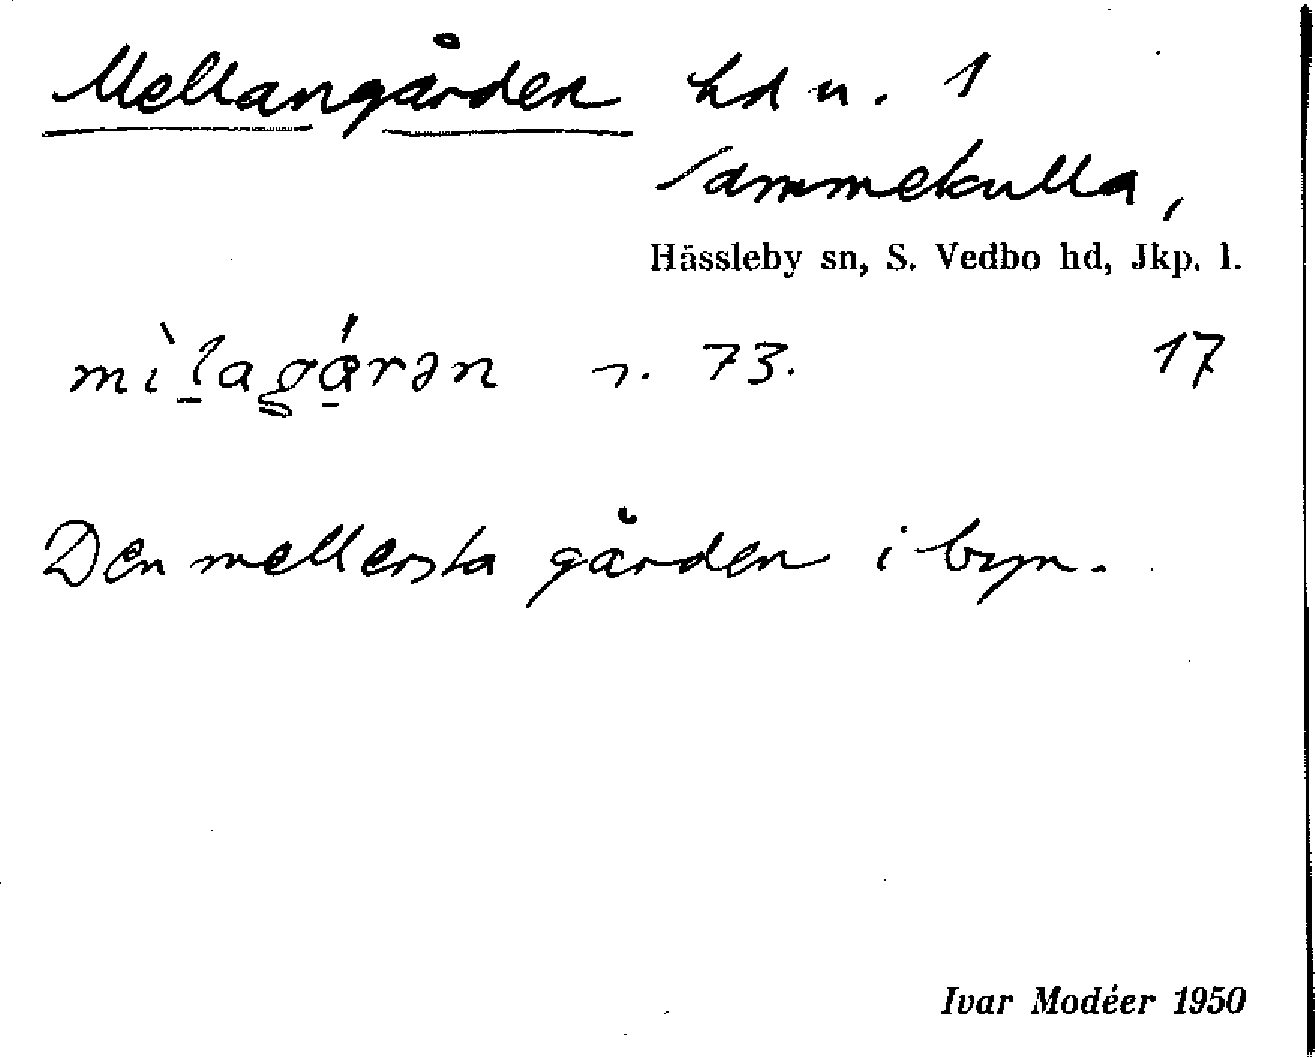 Mellangården hd n. 1
Sammekulla,
Hässleby sn, S. Vedbo hd, Jkp. l.
73. 17
Den mellersta gården i byn.
Ivar Modéer 1950